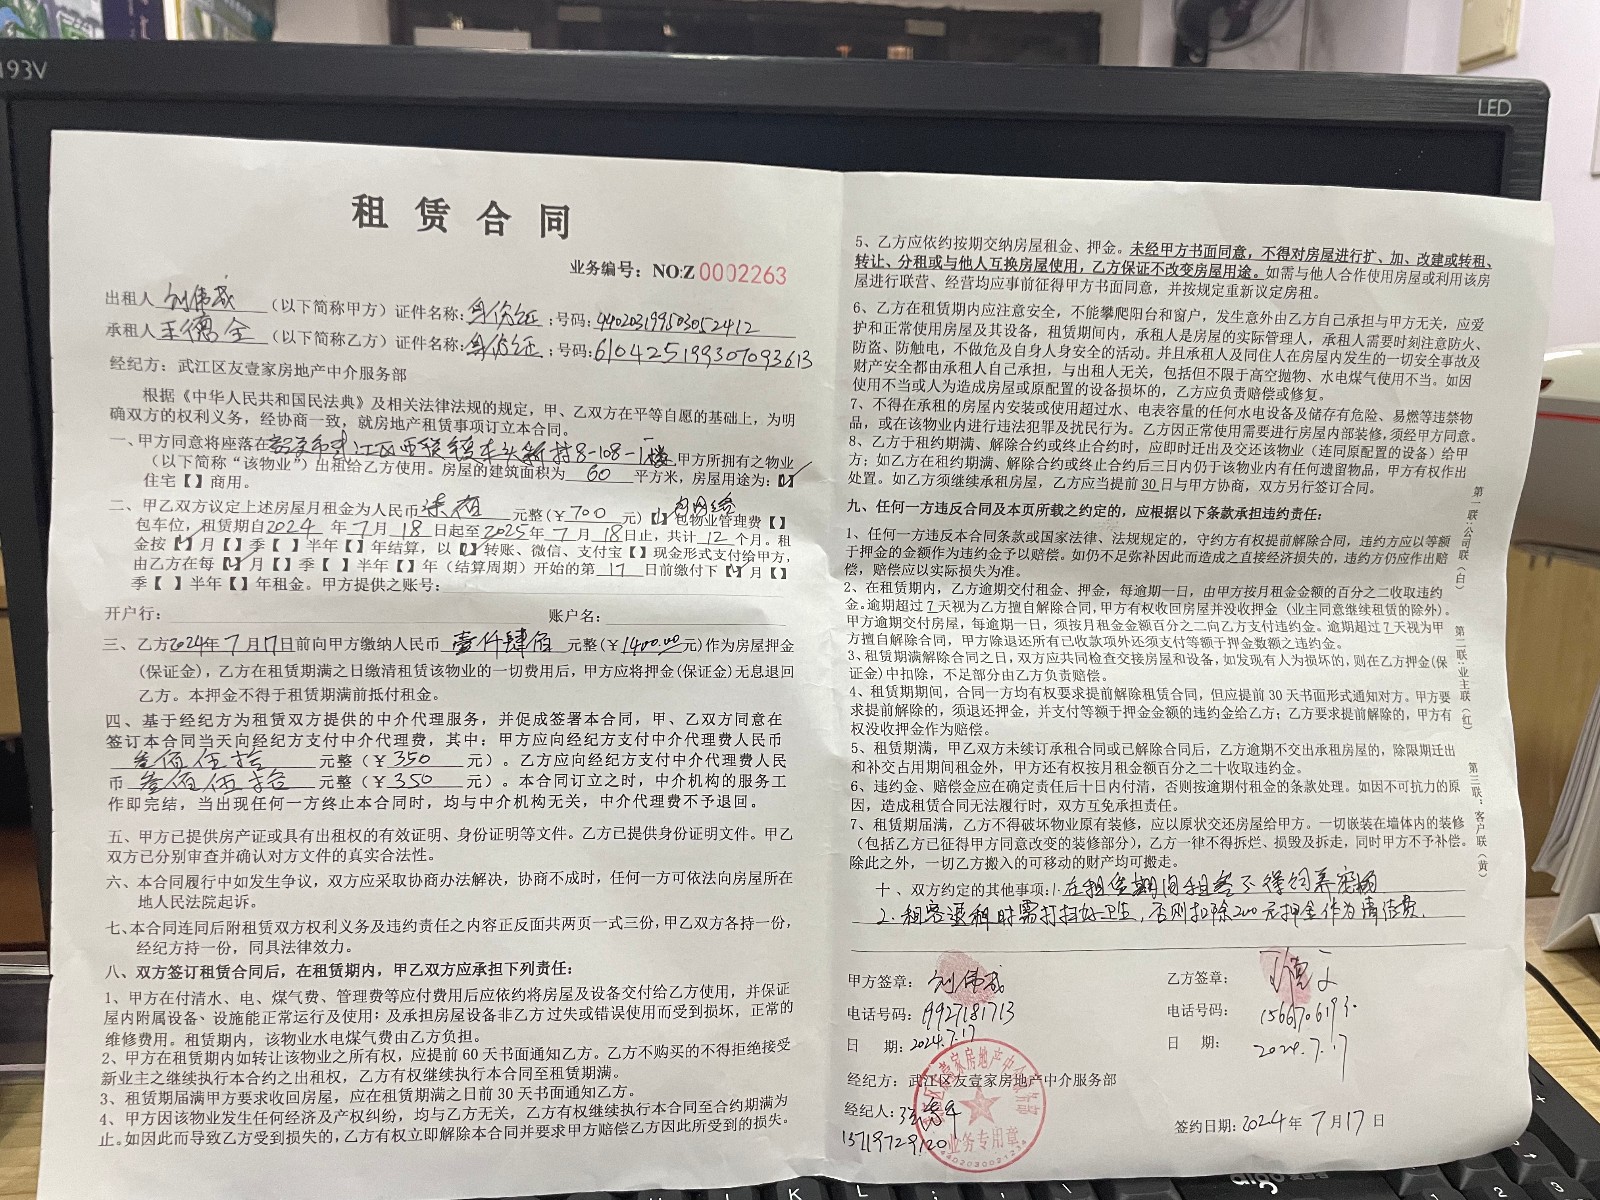 193V
LED
租赁合同
业务编号：NO:Z0002263
出租人 刘伟成 （以下简称甲方）证件名称：身份证；号码：440203199503052412
承租人 王德全 （以下简称乙方）证件名称：身份证；号码：610425199307093613
经纪方：武江区友壹家房地产中介服务部
根据《中华人民共和国民法典》及相关法律法规的规定，甲、乙双方在平等自愿的基础上，为明
确双方的权利义务，经协商一致，就房地产租赁事项订立本合同。
一、甲方同意将座落在韶关市武江区西联镇车头新村8-108-1楼 甲方所拥有之物业
（以下简称“该物业”）出租给乙方使用。房屋的建筑面积为 60 平方米，房屋用途为：【✓】
住宅【 】商用。
二、甲乙双方议定上述房屋月租金为人民币 柒佰 元整（￥700 元）【✓】包物业管理费【 】
包网络
包车位，租赁期自2024 年 7 月 18 日起至 2025 年 7 月 18 日止，共计 12 个月。租
金按【✓】月【 】季【 】半年【 】年结算，以【✓】转账、微信、支付宝【 】现金形式支付给甲方，
由乙方在每【✓】月【 】季【 】半年【 】年（结算周期）开始的第 17 日前缴付下【✓】月【 】
季【 】半年【 】年租金。甲方提供之账号：
开户行： 账户名：
三、乙方2024年 7 月17日前向甲方缴纳人民币 壹仟肆佰 元整（￥1400.00元）作为房屋押金
(保证金)，乙方在租赁期满之日缴清租赁该物业的一切费用后，甲方应将押金(保证金)无息退回
乙方。本押金不得于租赁期满前抵付租金。
四、基于经纪方为租赁双方提供的中介代理服务，并促成签署本合同，甲、乙双方同意在
签订本合同当天向经纪方支付中介代理费，其中：甲方应向经纪方支付中介代理费人民币
叁佰伍拾 元整（￥350 元）。乙方应向经纪方支付中介代理费人民
币 叁佰伍拾 元整（￥350 元）。本合同订立之时，中介机构的服务工
作即完结，当出现任何一方终止本合同时，均与中介机构无关，中介代理费不予退回。
五、甲方已提供房产证或具有出租权的有效证明、身份证明等文件。乙方已提供身份证明文件。甲乙
双方已分别审查并确认对方文件的真实合法性。
六、本合同履行中如发生争议，双方应采取协商办法解决，协商不成时，任何一方可依法向房屋所在
地人民法院起诉。
七、本合同连同后附租赁双方权利义务及违约责任之内容正反面共两页一式三份，甲乙双方各持一份，
经纪方持一份，同具法律效力。
八、双方签订租赁合同后，在租赁期内，甲乙双方应承担下列责任：
1、甲方在付清水、电、煤气费、管理费等应付费用后应依约将房屋及设备交付给乙方使用，并保证
屋内附属设备、设施能正常运行及使用：及承担房屋设备非乙方过失或错误使用而受到损坏，正常的
维修费用。租赁期内，该物业水电煤气费由乙方负担。
2、甲方在租赁期内如转让该物业之所有权，应提前 60 天书面通知乙方。乙方不购买的不得拒绝接受
新业主之继续执行本合约之出租权，乙方有权继续执行本合同至租赁期满。
3、租赁期届满甲方要求收回房屋，应在租赁期满之日前 30 天书面通知乙方。
4、甲方因该物业发生任何经济及产权纠纷，均与乙方无关，乙方有权继续执行本合同至合约期满为
止。如因此而导致乙方受到损失的，乙方有权立即解除本合同并要求甲方赔偿乙方因此所受到的损失。
5、乙方应依约按期交纳房屋租金、押金。未经甲方书面同意，不得对房屋进行扩、加、改建或转租、
转让、分租或与他人互换房屋使用，乙方保证不改变房屋用途。如需与他人合作使用房屋或利用该房
屋进行联营、经营均应事前征得甲方书面同意，并按规定重新议定房租。
6、乙方在租赁期内应注意安全，不能攀爬阳台和窗户，发生意外由乙方自己承担与甲方无关，应爱
护和正常使用房屋及其设备，租赁期间内，承租人是房屋的实际管理人，承租人需要时刻注意防火、
防盗、防触电，不做危及自身人身安全的活动。并且承租人及同住人在房屋内发生的一切安全事故及
财产安全都由承租人自己承担，与出租人无关，包括但不限于高空抛物、水电煤气使用不当。如因
使用不当或人为造成房屋或原配置的设备损坏的，乙方应负责赔偿或修复。
7、不得在承租的房屋内安装或使用超过水、电表容量的任何水电设备及储存有危险、易燃等违禁物
品，或在该物业内进行违法犯罪及扰民行为。乙方因正常使用需要进行房屋内部装修，须经甲方同意。
8、乙方于租约期满、解除合约或终止合约时，应即时迁出及交还该物业（连同原配置的设备）给甲
方；如乙方在租约期满、解除合约或终止合约后三日内仍于该物业内有任何遗留物品，甲方有权作出
处置。如乙方须继续承租房屋，乙方应当提前 30 日与甲方协商，双方另行签订合同。
九、任何一方违反合同及本页所载之约定的，应根据以下条款承担违约责任：
1、任何一方违反本合同条款或国家法律、法规规定的，守约方有权提前解除合同，违约方应以等额
于押金的金额作为违约金予以赔偿。如仍不足弥补因此而造成之直接经济损失的，违约方仍应作出赔
偿，赔偿应以实际损失为准。
2、在租赁期内，乙方逾期交付租金、押金，每逾期一日，由甲方按月租金金额的百分之二收取违约
金。逾期超过 7 天视为乙方擅自解除合同，甲方有权收回房屋并没收押金（业主同意继续租赁的除外）。
甲方逾期交付房屋，每逾期一日，须按月租金金额百分之二向乙方支付违约金。逾期超过 7 天视为甲
方擅自解除合同，甲方除退还所有已收款项外还须支付等额于押金数额之违约金。
3、租赁期满解除合同之日，双方应共同检查交接房屋和设备，如发现有人为损坏的，则在乙方押金(保
证金)中扣除，不足部分由乙方负责赔偿。
4、租赁期期间，合同一方均有权要求提前解除租赁合同，但应提前 30 天书面形式通知对方。甲方要
求提前解除的，须退还押金，并支付等额于押金金额的违约金给乙方；乙方要求提前解除的，甲方有
权没收押金作为赔偿。
5、租赁期满，甲乙双方未续订承租合同或已解除合同后，乙方逾期不交出承租房屋的，除限期迁出
和补交占用期间租金外，甲方还有权按月租金额百分之二十收取违约金。
6、违约金、赔偿金应在确定责任后十日内付清，否则按逾期付租金的条款处理。如因不可抗力的原
因，造成租赁合同无法履行时，双方互免承担责任。
7、租赁期届满，乙方不得破坏物业原有装修，应以原状交还房屋给甲方。一切嵌装在墙体内的装修
（包括乙方已征得甲方同意改变的装修部分），乙方一律不得拆烂、损毁及拆走，同时甲方不予补偿。
除此之外，一切乙方搬入的可移动的财产均可搬走。
十、双方约定的其他事项：1.在租赁期间租客不得饲养宠物
2.租客退租时需打扫好卫生，否则扣除200元押金作为清洁费．
甲方签章：刘伟成 乙方签章：王德全
电话号码：19927181713 电话号码：1566706193
日 期：2024.7.17 日 期：2024.7.17
经纪方：武江区友壹家房地产中介服务部
经纪人：
13719729120 签约日期：2024年 7月17日
武江区友壹家房地产中介服务部
业务专用章
第一联：公司联（白）
第二联：业主联（红）
第三联：客户联（黄）
aigo
K L